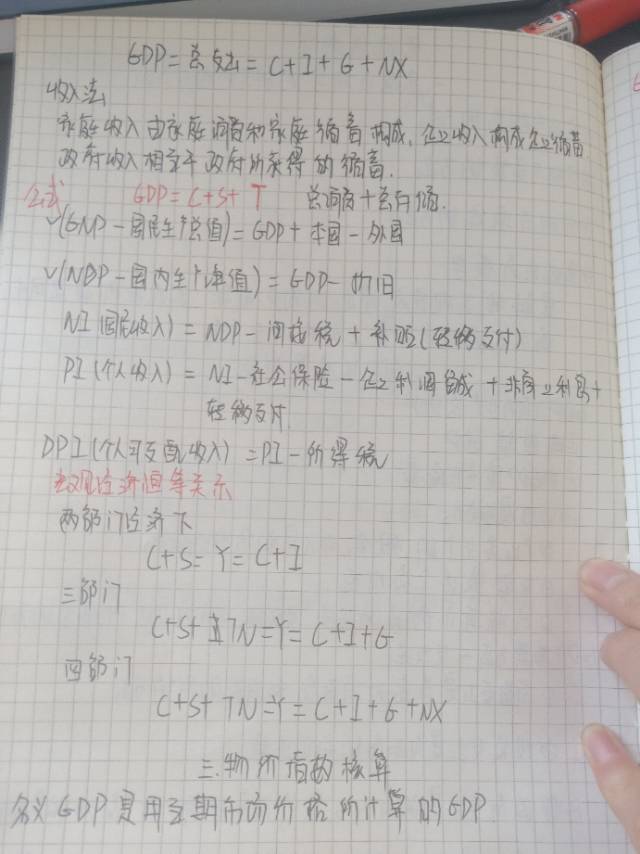 GDP = 总支出 = C+I+G+NX
收入法
家庭收入由家庭消费和家庭储蓄构成,企业收入构成企业储蓄
政府收入相当于政府所获得的储蓄.
公式 GDP = C+S+T 总消费+总存储.
√(GNP-国民生产总值)=GDP+本国-外国
√(NDP-国内生产净值)=GDP-折旧
NI(国民收入)=NDP-间接税+补贴(转移支付)
PI(个人收入)=NI-社会保险-企业利润 + 非企业利息+
转移支付
DPI(个人可支配收入)=PI-所得税
宏观经济恒等关系
两部门经济下
C+S=Y=C+I
三部门
C+S+TN=Y=C+I+G
四部门
C+S+TN=Y=C+I+G+NX
三.物价指数核算
名义GDP是用当期市场价格所计算的GDP